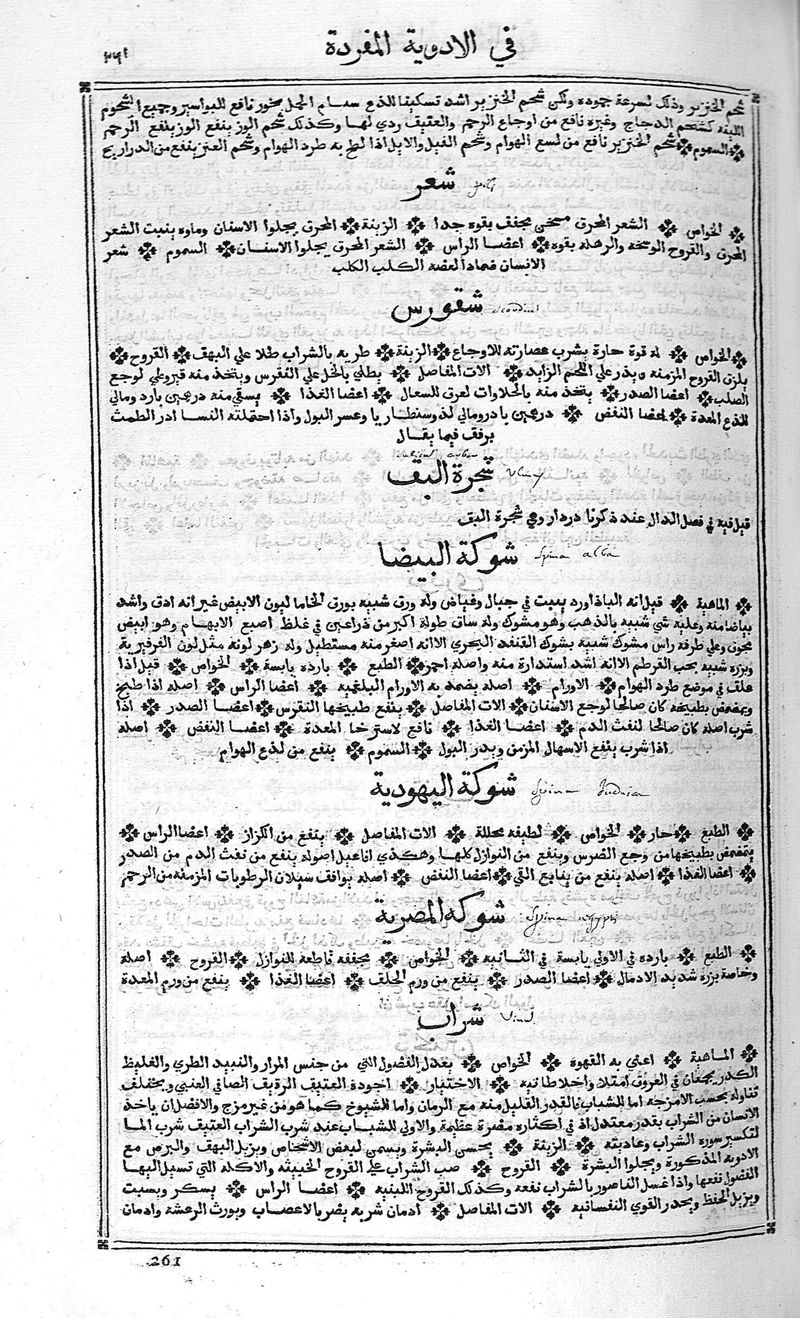 في الادوية المفردة
٢٦١
شحم الخنزير وذلك لسرعة جموده ولكن شحم الخنزير اشد تسكينا للذع سنام الجمل بخور نافع للبواسير وجميع الشحوم
اللينه كشحم الدجاج وغيره نافع من اوجاع الرحم والعتيق ردي لها وكذلك شحم الوز ينفع الوز ينفع الرحم
السموم شحم الخنزير نافع من لسع الهوام وشحم الفيل والايل اذا لطخ به طرد الهوام وشحم العنز ينفع من الدراريح
شعر
الخواص الشعر المحرق مسخن مجفف بقوه جدا الزينة المحرق يجلوا الاسنان وماوه ينبت الشعر
المحرق والقروح الوسخه والرهله بقوه اعضا الراس الشعر المحرق يجلوا الاسنان السموم شعر
الانسان ضمادا لعضه الكلب الكلب
شقورس
الخواص له قوة حارة يشرب عصارته للاوجاع الزينة طريه بالشراب طلا علي البهق القروح
يلزق القروح المزمنه ويذر علي اللحم الزايد الات المفاصل يطلي بالخل علي النقرس ويتخذ منه قيروطي لوجع
الصلب اعضا الصدر يتخذ منه بالحلاوات لعوق للسعال اعضا الغذا يسقي منه درهمين بارد ومالي
للذع المعدة اعضا النفض درهمين بادرومالي لذوسنطاريا وعسر البول واذا احتملته النسا ادر الطمث
برفق فيما يقال
شجرة البق Ulmus
قيل فيه في فصل الدال عند ذكرنا دردار وهي شجرة البق
شوكة البيضا Spina alba
الماهية قيل انه الباذاورد ينبت في جبال وغياض وله ورق شبيه بورق الخامالیون الابيض غير انه ادق واشد
بياضا منه وعليه شي شبيه بالذهب وهو مشوك وله ساق طوله اكبر من ذراعين في غلظ اصبع الابهام وهو ابيض
مجوف وعلي طرفه راس مشوك شبيه بشوك القنفد البحري الا انه اصغر منه مستطيل وله زهر لونه مثل لون الفرفيرية
وبزره شبيه بحب القرطم الا انه اشد استدارة منه واصله احمر الطبع بارده يابسة الخواص قيل اذا
علف في موضع طرد الهوام الاورام اصله يضمد به الاورام البلغميه اعضا الراس اصله اذا طبخ
وتمضمض بطبيخه كان صالحا لوجع الاسنان الات المفاصل ينفع طبيخها النقرس اعضا الصدر اذا
شرب اصله كان صالحا لنفث الدم اعضا الغذا نافع لاسترخا المعدة اعضا النفض اصله
اذا شرب ينفع الاسهال المزمن ويدر البول السموم ينفع من لدغ الهوام
شوكة اليهودية Spina Judaica
الطبع حار الخواص لطيفه محللة الات المفاصل ينفع من الكزاز اعضا الراس
يتمضمض بطبيخها من وجع الضرس وينفع من النوازل كلها وهكذي افاعيل اصوله ينفع من نفث الدم من الصدر
اعضا الغذا اصله ينفع من القي اعضا النفض اصله يوافق سيلان الرطوبات المزمنه من الرحم
شوكة المصرية Spina aegypti
الطبع بارده في الاولي يابسة في الثانيه الخواص مجففه قاطعة للنوازل القروح اصله
وخاصة بزره شديد الادمال اعضا الصدر ينفع من ورم الحلق اعضا الغذا ينفع من ورم المعدة
شراب Vinum
الماهية اعني به القهوه الخواص يعدل الفضول التي من جنس المرار والنبيد الطري والغليظ
الكدر يجمعان في العروق امتلا واخلاطا نيه الاختيار اجوده العتيق الرقيق الصافي العنبي ويختلف
تناوله بحسب الامزجه اما للشباب فالقدر القليل منه مع الرمان واما للشيوخ كما هو من غير مزج والافضل ان ياخذ
الانسان من الشراب بقدر معتدل اذ في اكثاره مضرة عظيمة والاولي للشباب عند شرب الشراب العتيق شرب الما
لتكسير سوره الشراب وعاديته الزينة يحسن البشرة ويسمن لبعض الاشخاص ويزيل البهق والبرص مع
الادويه المذكورة ويجلوا البشرة القروح صب الشراب علي القروح الخبيثه والاكله التي تسيل اليها
الفضول نفعها واذا غسل الناصور بالشراب نفعه وكذلك القروح اللبنيه اعضا الراس يسكر ويسبت
ويزيل الحفظ ويحدر القوي النفسانيه الات المفاصل ادمان شربه يضر بالاعصاب ويورث الرعشة وادمان
261